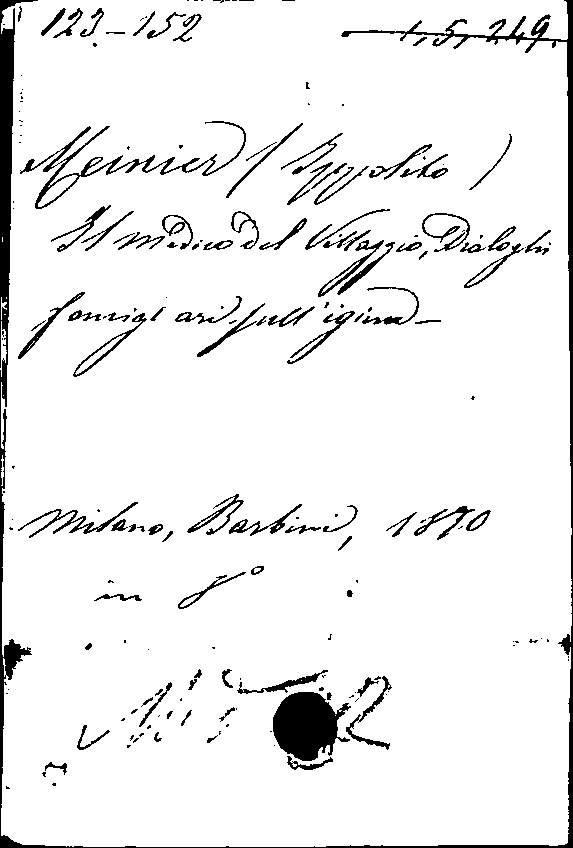 123-152 1,5,249.
Meinier (Ippolito)
Il medico del Villaggio, Dialoghi
famigliari sull'igiene—
Milano, Barbini, 1870
in 8°